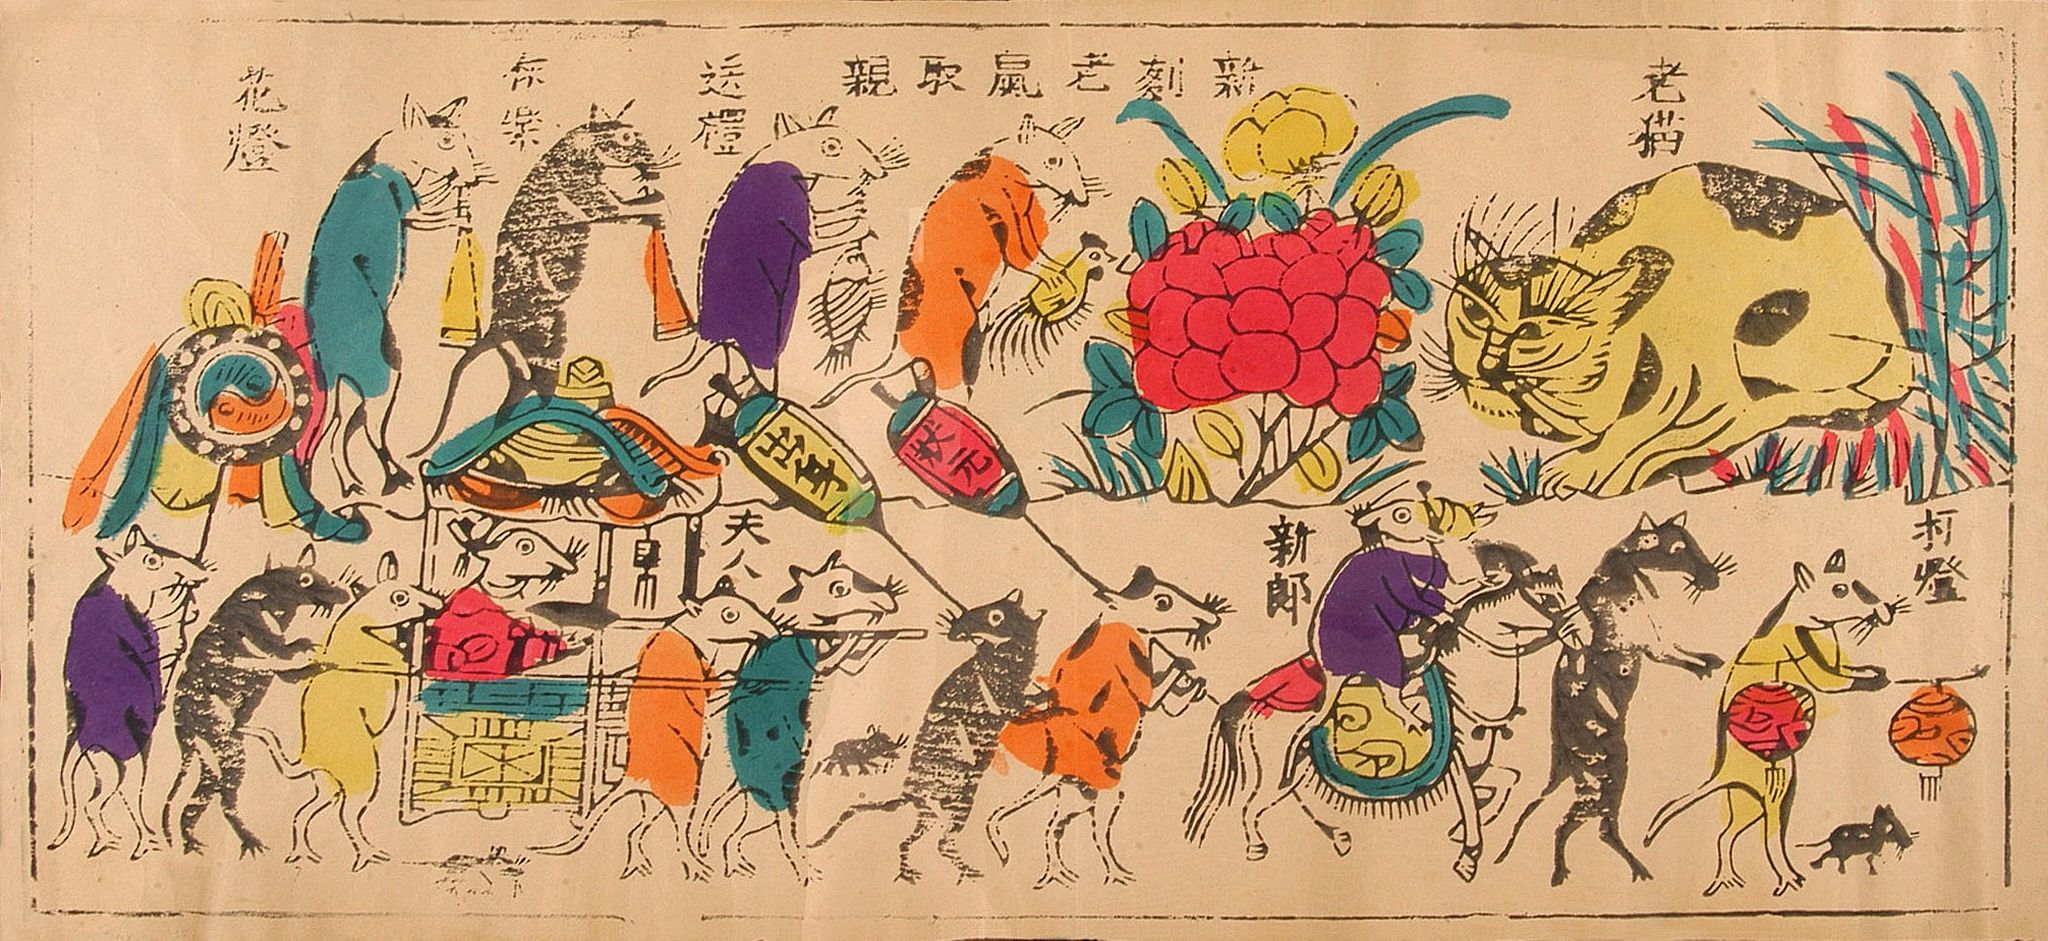 新刻老鼠取親
老猫
送禮
花燈
狀元
打燈
新郎
夫人